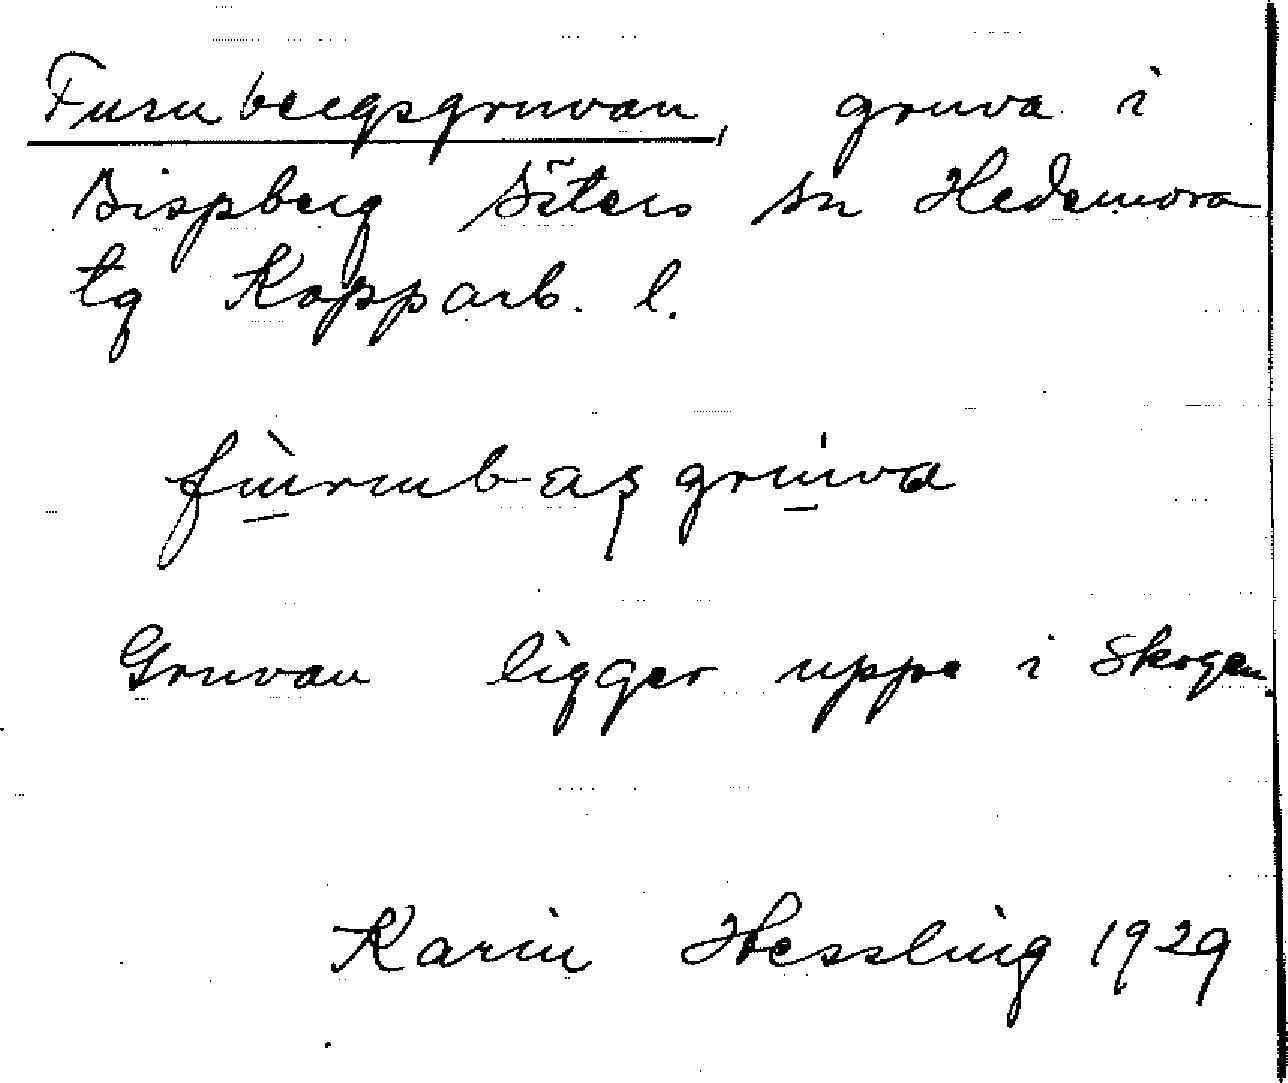 Furubergsgruvan, gruva i
Bispberg Säters sn Hedemora
tg Kopparb. l.
Gruvan ligger uppe i skogen.
Karin Hessling 1929